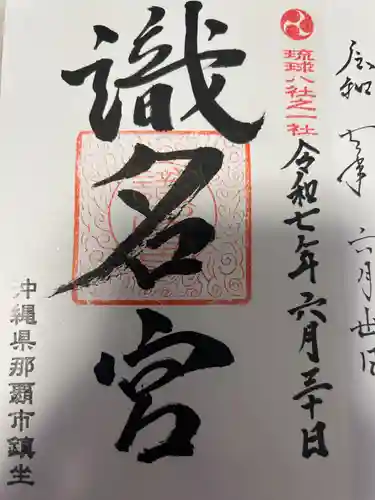 令和七年六月廿日
琉球八社之一社
令和七年六月三十日
識名宮
沖縄県那覇市鎮坐